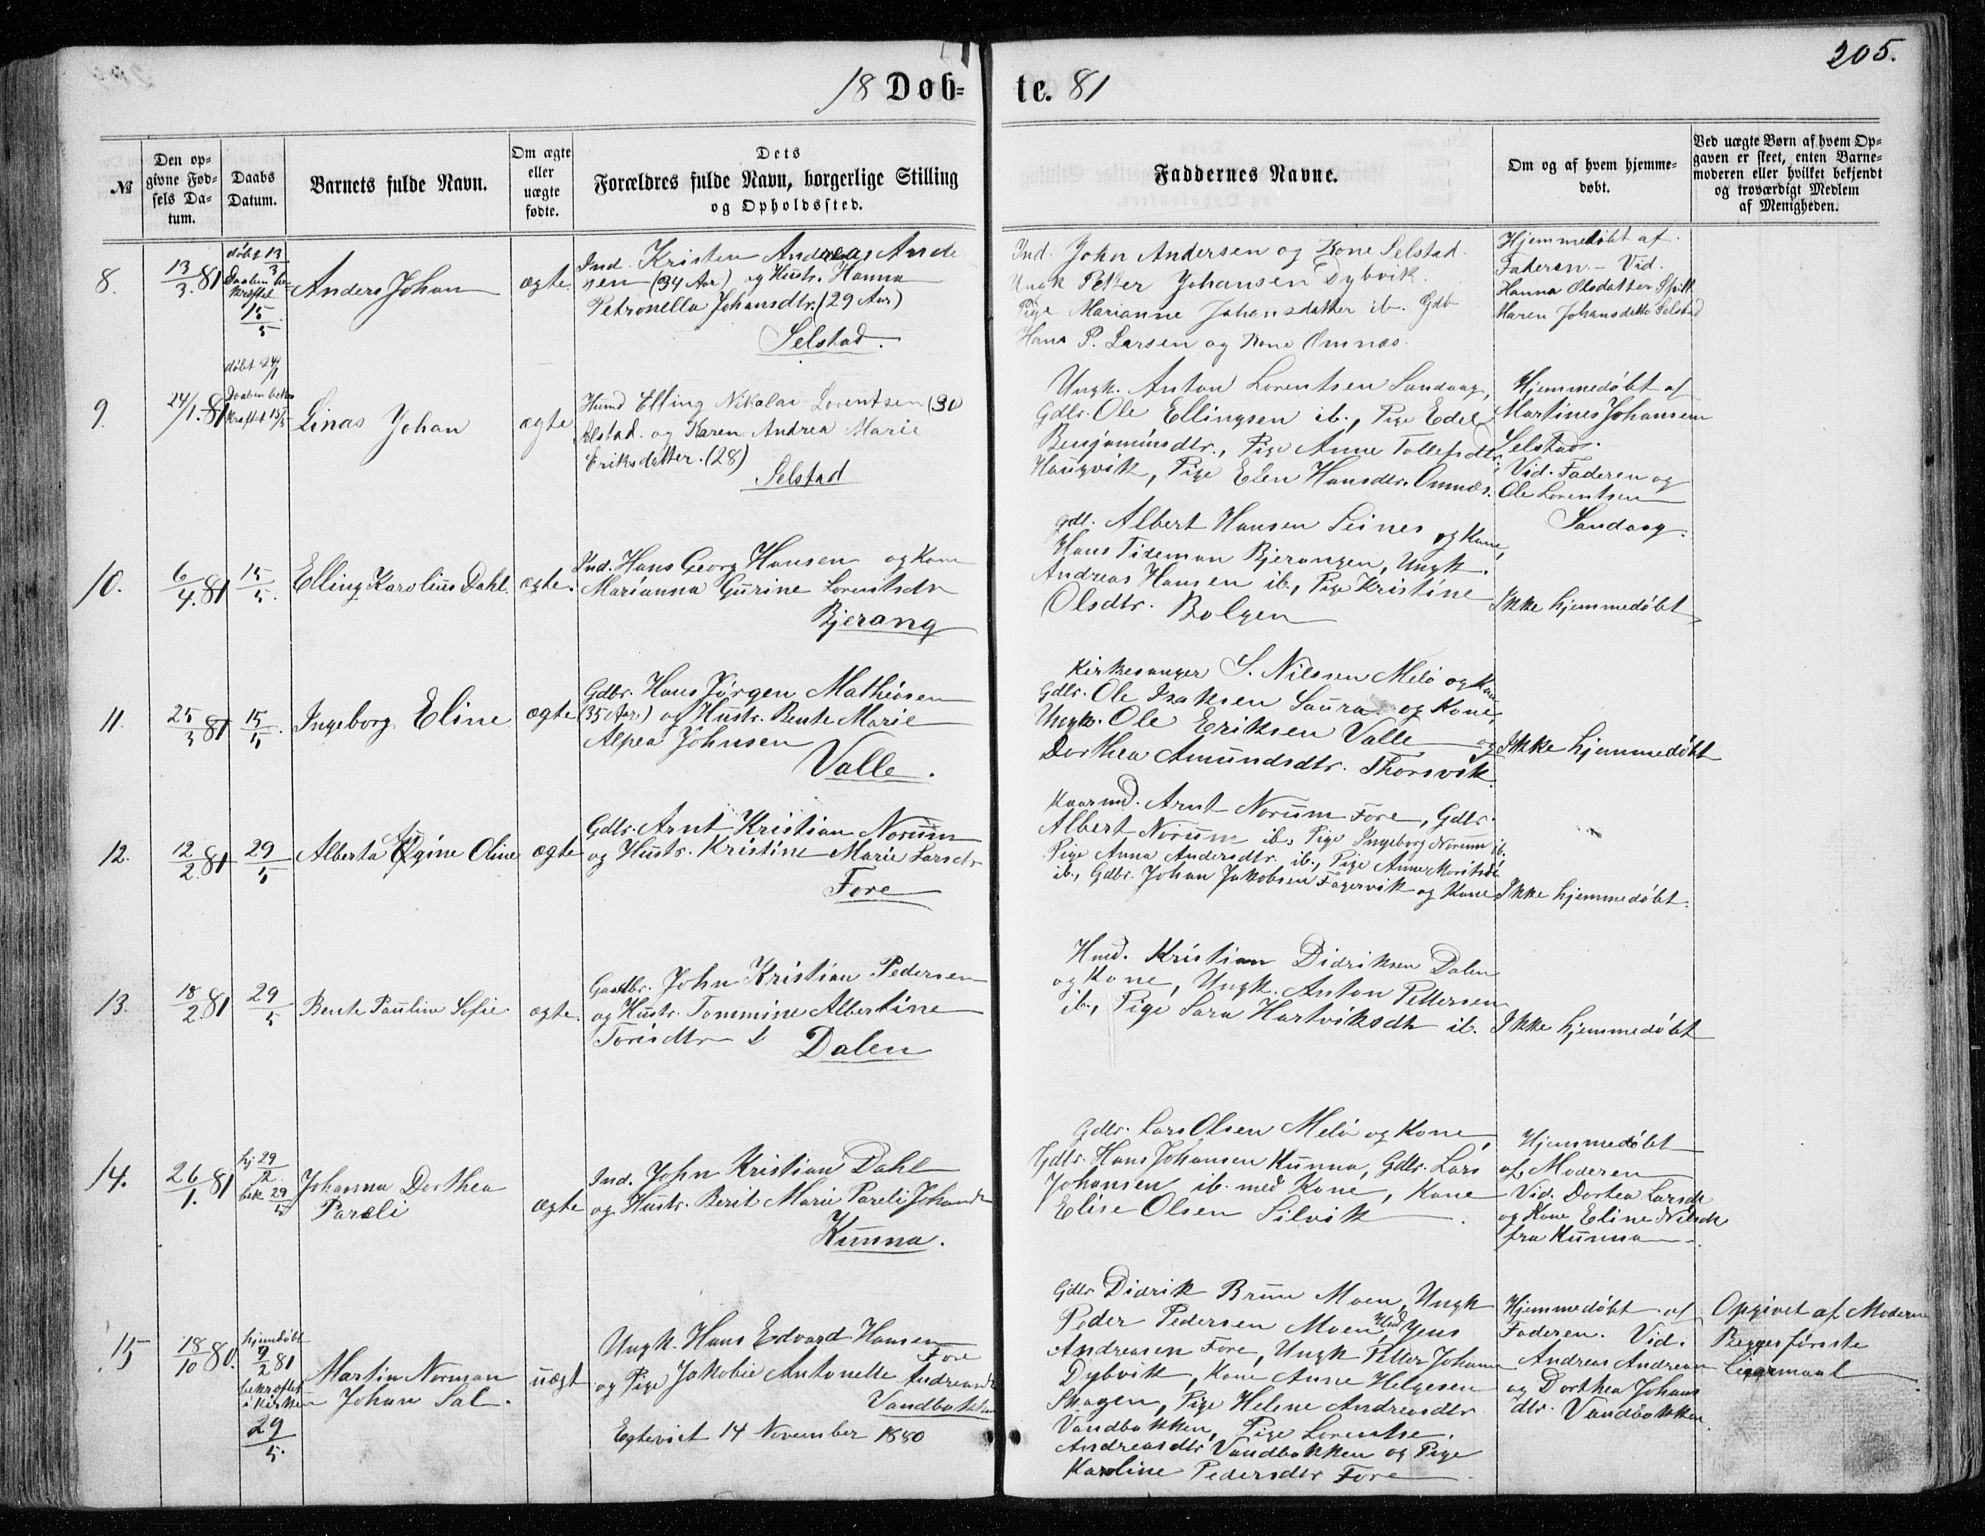 205.
18 Døb-te. 81
№
Den opgivne Fødsels Datum.
Daabs Datum.
Barnets fulde Navn.
Om ægte eller uægte fødte.
Dets Forældres fulde Navn, borgerlige Stilling og Opholdssted.
Faddernes Navne.
Om og af hvem hjemmedøbt.
Ved uægte Børn af hvem Opgaven er skeet, enten Barnemoderen eller hvilket bekjendt og troværdigt Medlem af Menigheden.
8.
13/3. 81
døbt 13/3
Daaben bekræftet
15/5
Anders Johan
ægte.
Ind. Kristen Andreas Ande
sen (34 Aar) og Hustr. Hanna
Petronella Johansdtr. (29 Aar)
Selstad.
Ind. John Andersen og Kone Selstad.
Ungk Petter Johansen Dybvik.
Pige Marianne Johansdatter ib. Gdb
Hans P. Larsen og Kone Omnæs.
Hjemmedøbt af
Faderen. - Vid.
Hanna Olsdatter
Maren Johansdatter Selstad
9.
24/1. 81
døbt 24/1
Daaben bekræftet 15/5
Linas Johan
ægte
Husmd Elling Nikolai Lorentsen (30
Alstad. og Karen Andrea Marie
Eriksdatter. (28)
Selstad
Ungk. Anton Lorentsen Sandaag,
Gdbr. Ole Ellingsen ib., Pige Edel
Benjaminsdtr., Pige Anne Tollefsdtr.
Haugvik, Pige Elen Hansdtr. Omnæs.
Hjemmedøbt af
Martines Johansen
Selstad.
Vid. Faderen og
Ole Lorentsen
Sandaag.
10.
6/4. 81
15/5.
Elling Karolius Dahl.
ægte.
Ind. Hans Georg Hansen og Kone
Marianna Gurine Lorentsdtr
Bjerang
Gdb. Albert Hansen Seines og Kone,
Hans Tideman Bjerangen, Ungk.
Andreas Hansen ib., Pige Kristine
Olsdtr. Bolgen
Ikke hjemmedøbt
11.
25/3 81
15/5.
Ingeborg Eline
ægte
Gdbr. Hans Jørgen Mathisen
(35 Aar.) og Hustr. Bente Marie
Alpea Johnsen
Valle.
Kirkesanger S. Nilssen Melø og Kone
Gdbr. Ole Isaksen Saura og Kone,
Ungk. Ole Eriksen Valle og
Dorthea Amundsdtr. Thorsvik
Ikke hjemmedøbt
12.
12/2. 81
29/5
Alberta Oline
ægte
Gdbr. Arnt Kristian Norum
og Hustr. Kristine Marie Larsdtr
Fore
Kaarmd. Arnt Norum Fore, Gdbr.
Albert Norum ib., Pige Ingeborg Norum ib.
Pige Anna Andersdtr. ib., Pige Anne Moritsdtr
ib., Gdbr. Johan Jakobsen Fagervik og Kone
Ikke hjemmedøbt.
13.
18/2. 81
29/5
Bente Pauline Sofie
ægte.
Gaardbr. John Kristian Pedersen
og Hustr. Tommine Albertine
Torisdtr
Dalen
Hmd. Kristian Didriksen Dalen
og Kone, Ungk. Anton Pettersen
ib., Pige Sara Hartviksdtr ib.
Ikke hjemmedøbt
14.
26/1. 81
hj 29/2.
bek 29/5
Johanna Dorthea
Paræli
ægte
Ind. John Kristian Dahl
og Hustr. Berit Marie Pareli Johansdtr
Kunna.
Gdbr. Lars Olsen Melø og Kone,
Gdbr. Hans Johansen Kunna, Gdbr. Lars
Johansen ib. med Kone, Kone
Elise Olsen Silvik.
Hjemmedøbt
af Moderen
Vid. Dortea Larsdtr
og Kone Eline Nilsdtr
fra Kunna.
15
18/10 80.
hjemdøbt
9/2 81
bekræftet
i kirken
29/5.
Martin Norman
Johan Sal.
uægt
Ungk. Hans Edvard Hansen
Fore
og Pige Jakobie Antonette Andreasdtr
Vandbakken
Egteviet 14 November 1880
Gdbr Didrik Bruun Moen, Ungk
Peder Pedersen Moen, Hmd Jens
Andreasen Fore, Ungk Petter Johansen
Dybvik, Kone Anne Helgesen
Skagen, Pige Helene Andreasdtr
Vandbakken, Pige Lorentse
Andreasdtr Vandbakken og Pige
Karoline Pedersdtr Fore
Hjemmedøbt af
Faderen. Vid.
Andreas Andreasen
og Dorthea Johans
dtr. Vandbakken
Opgivet af Moderen
Begges første
Leiermaal